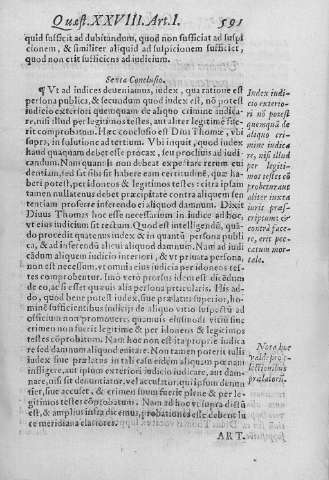 Quæst. XXVIII. Art. I. 591
quid sufficit ad dubitandum, quod non sufficiat ad suspi
cionem, & similiter aliquid ad suspicionem sufficit,
quod non erit sufficiens ad iudicium.
Sexta Conclusio.
¶ Vt ad iudices deueniamus, iudex, qua ratione est
persona publica, & secundum quod iudex est, nõ potest
iudicio exteriori quemquam de aliquo crimine iudica-
re, nisi illud per legitimos testes, aut aliter legitimè fue-
rit comprobatum. Hæc conclusio est Diui Thomæ, vbi
supra, in solutione ad tertium. Vbi inquit, quod iudex
haud quaquam debet esse procax, seu procliuis ad iudi-
candum. Nam quanuis non debeat expectare rerum eui
dentiam, sed sat sibi sit habere eam certitudinẽ, quæ ha-
beri potest, per idoneos & legitimos testes: citra ipsam
tamen nullatenus debet præcipitare contra aliquem sen
tentiam proferre inferendo ei aliquod damnum. Dixit
Diuus Thomas hoc esse necessarium in iudice ad hoc,
vt eius iudicium sit rectum. Quod est intelligendũ, quã-
do procedit quatenus iudex & in quantũ persona publi
ca, & ad inferendũ alicui aliquod damnum. Nam ad iudi
cãdum aliquem iudicio interiori, & vt priuata persona,
non est necessum, vt omnia eius iudicia per idoneos tes-
tes comprobentur. Imò vero prorsus idem est dicẽdum
de eo, ac si esset quæuis alia persona particularis. His ad-
do, quod bene potest iudex, siue prælatus superior, ho-
minẽ sufficientibus indicijs de aliquo vitio suspectum ad
officium non promouere: quamuis eiusmodi vitiũ siue
crimen non fuerit legitimè & per idoneos & legitimos
testes cõprobatum. Nam hoc non est ita propriè iudica
re sed damnum aliquod euitare. Non tamen poterit talis
iudex siue prælatus in tali casu eidem aliquam pœnam
infligere, aut ipsum exteriori iudicio iudicare, aut dam-
nare, nisi sit denuntiator, vel accusator, qui ipsum denun
tiet, siue accuset, & crimen suum fuerit plenè & per le-
gitimos testes cõprobatum. Nam ad hoc vt supra dictũ
est, & amplius infra dicemus, probationes esse debent lu
ce meridiana clariores.
ART.
Index iudi-
cio exterio-
ri nõ potest
quemquã de
aliquo cri-
mine iudica
re, nisi illud
per legiti-
mos testes cõ
probetur: aut
aliter iuxta
iuris præs-
criptum: &
contrà face-
re, erit pec-
catum mor-
tale.
Nota hoc